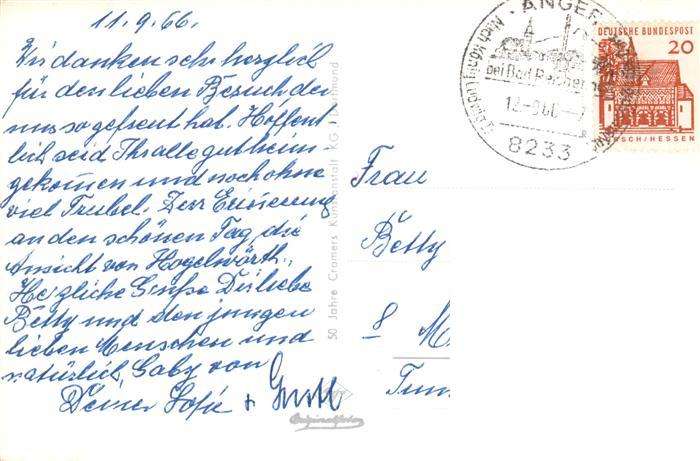 11.9.66.
Wir danken sehr herzlich
für den lieben Besuch der
uns so gefreut hat. Hoffent
lich seid Ihr alle gut heim
gekommen und noch ohne
viel Trubel. Zur Erinnerung
an den schönen Tag die
Ansicht von Hogelwörth.
Herzliche Grüße Dir liebe
Betty und den jungen
lieben Menschen und
natürlich Gaby von
Deiner Sofie +
50 Jahre Cramers Kunstanstalt KG, Dortmund
ANGER
bei Bad Reichen
12.-9.66.-7
8233
DEUTSCHE BUNDESPOST
20
LORSCH/HESSEN
Frau
Betty
8 M
Originalfoto